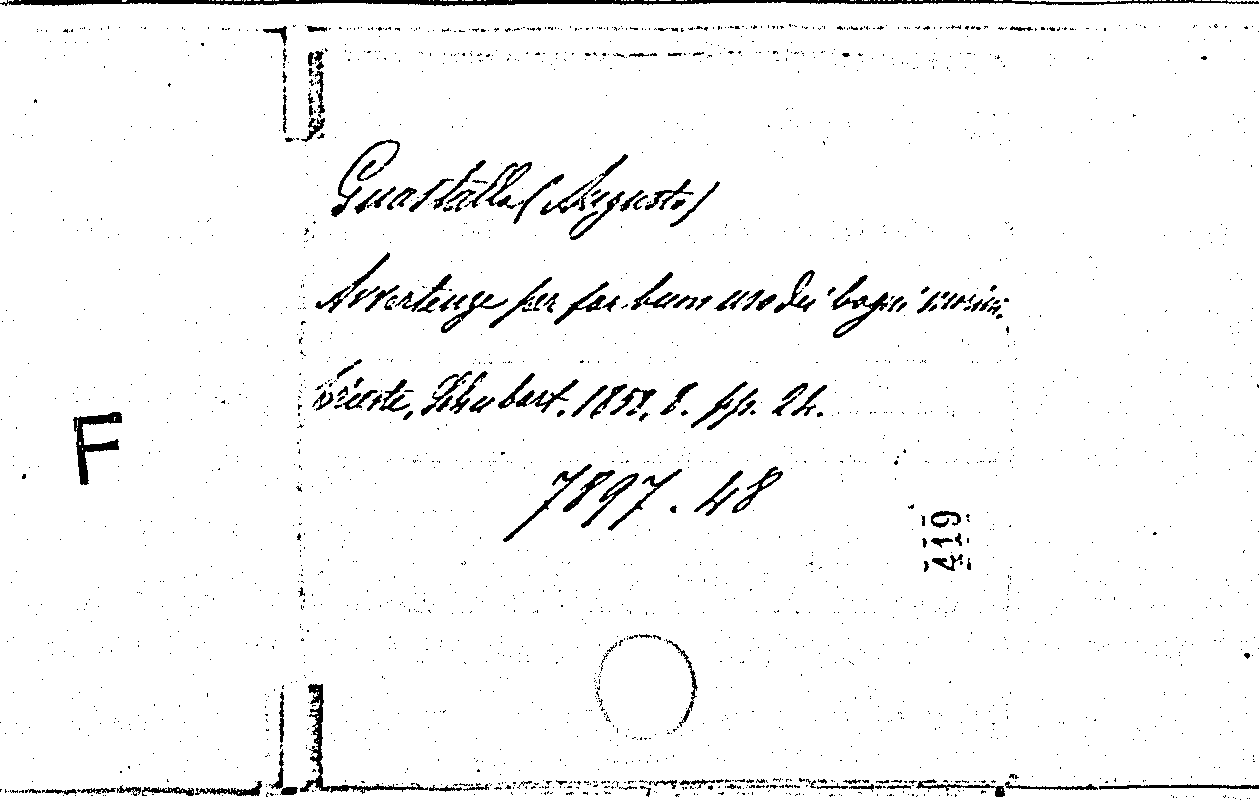 Guastalla (Augusto)
Avvertenze per far buon uso dei bagni marini.
Trieste, Schubart. 1858, 8. pp. 24.
F
7897.48
419